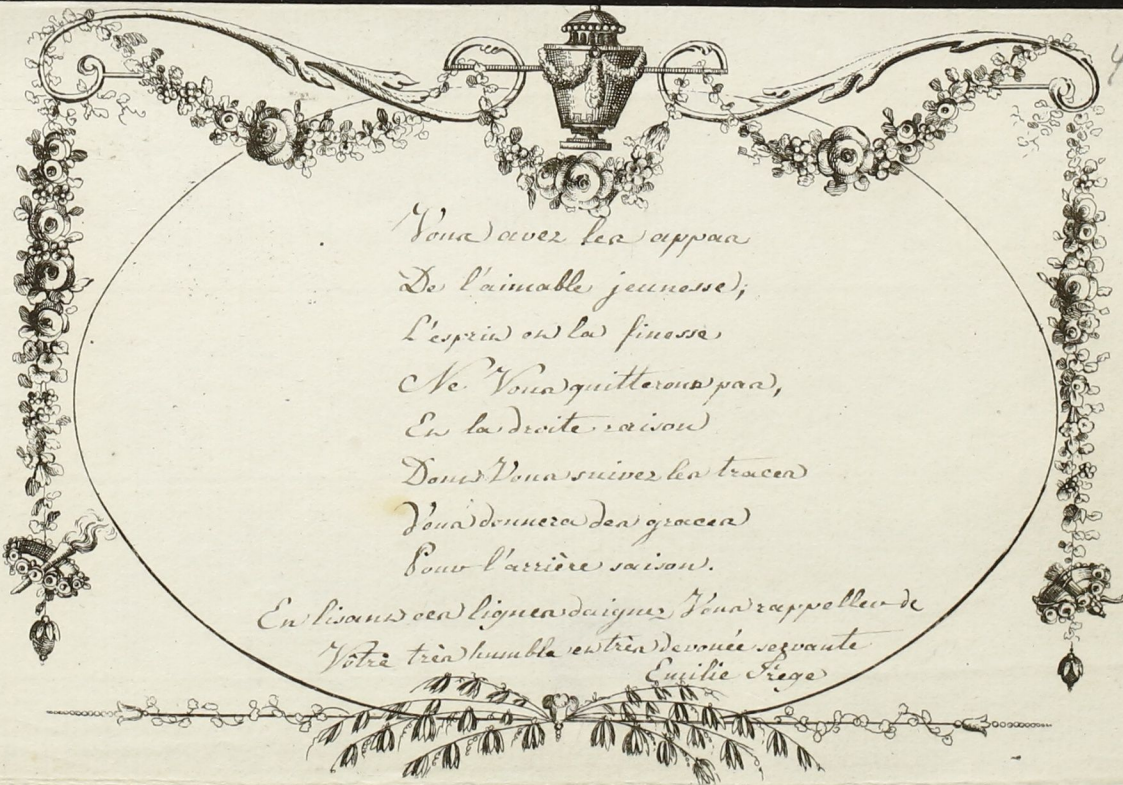 Vous avez les appas
De l'aimable jeunesse;
L'esprit et la finesse
Ne Vous quitteront pas,
Et la droite raison
Dont Vous suivez les traces
Vous donnera des graces
Pour l'arrière saison.
En lisant ces lignes daignez Vous rappeller de
Vôtre très humble et très devouée servante
Emilie Frege